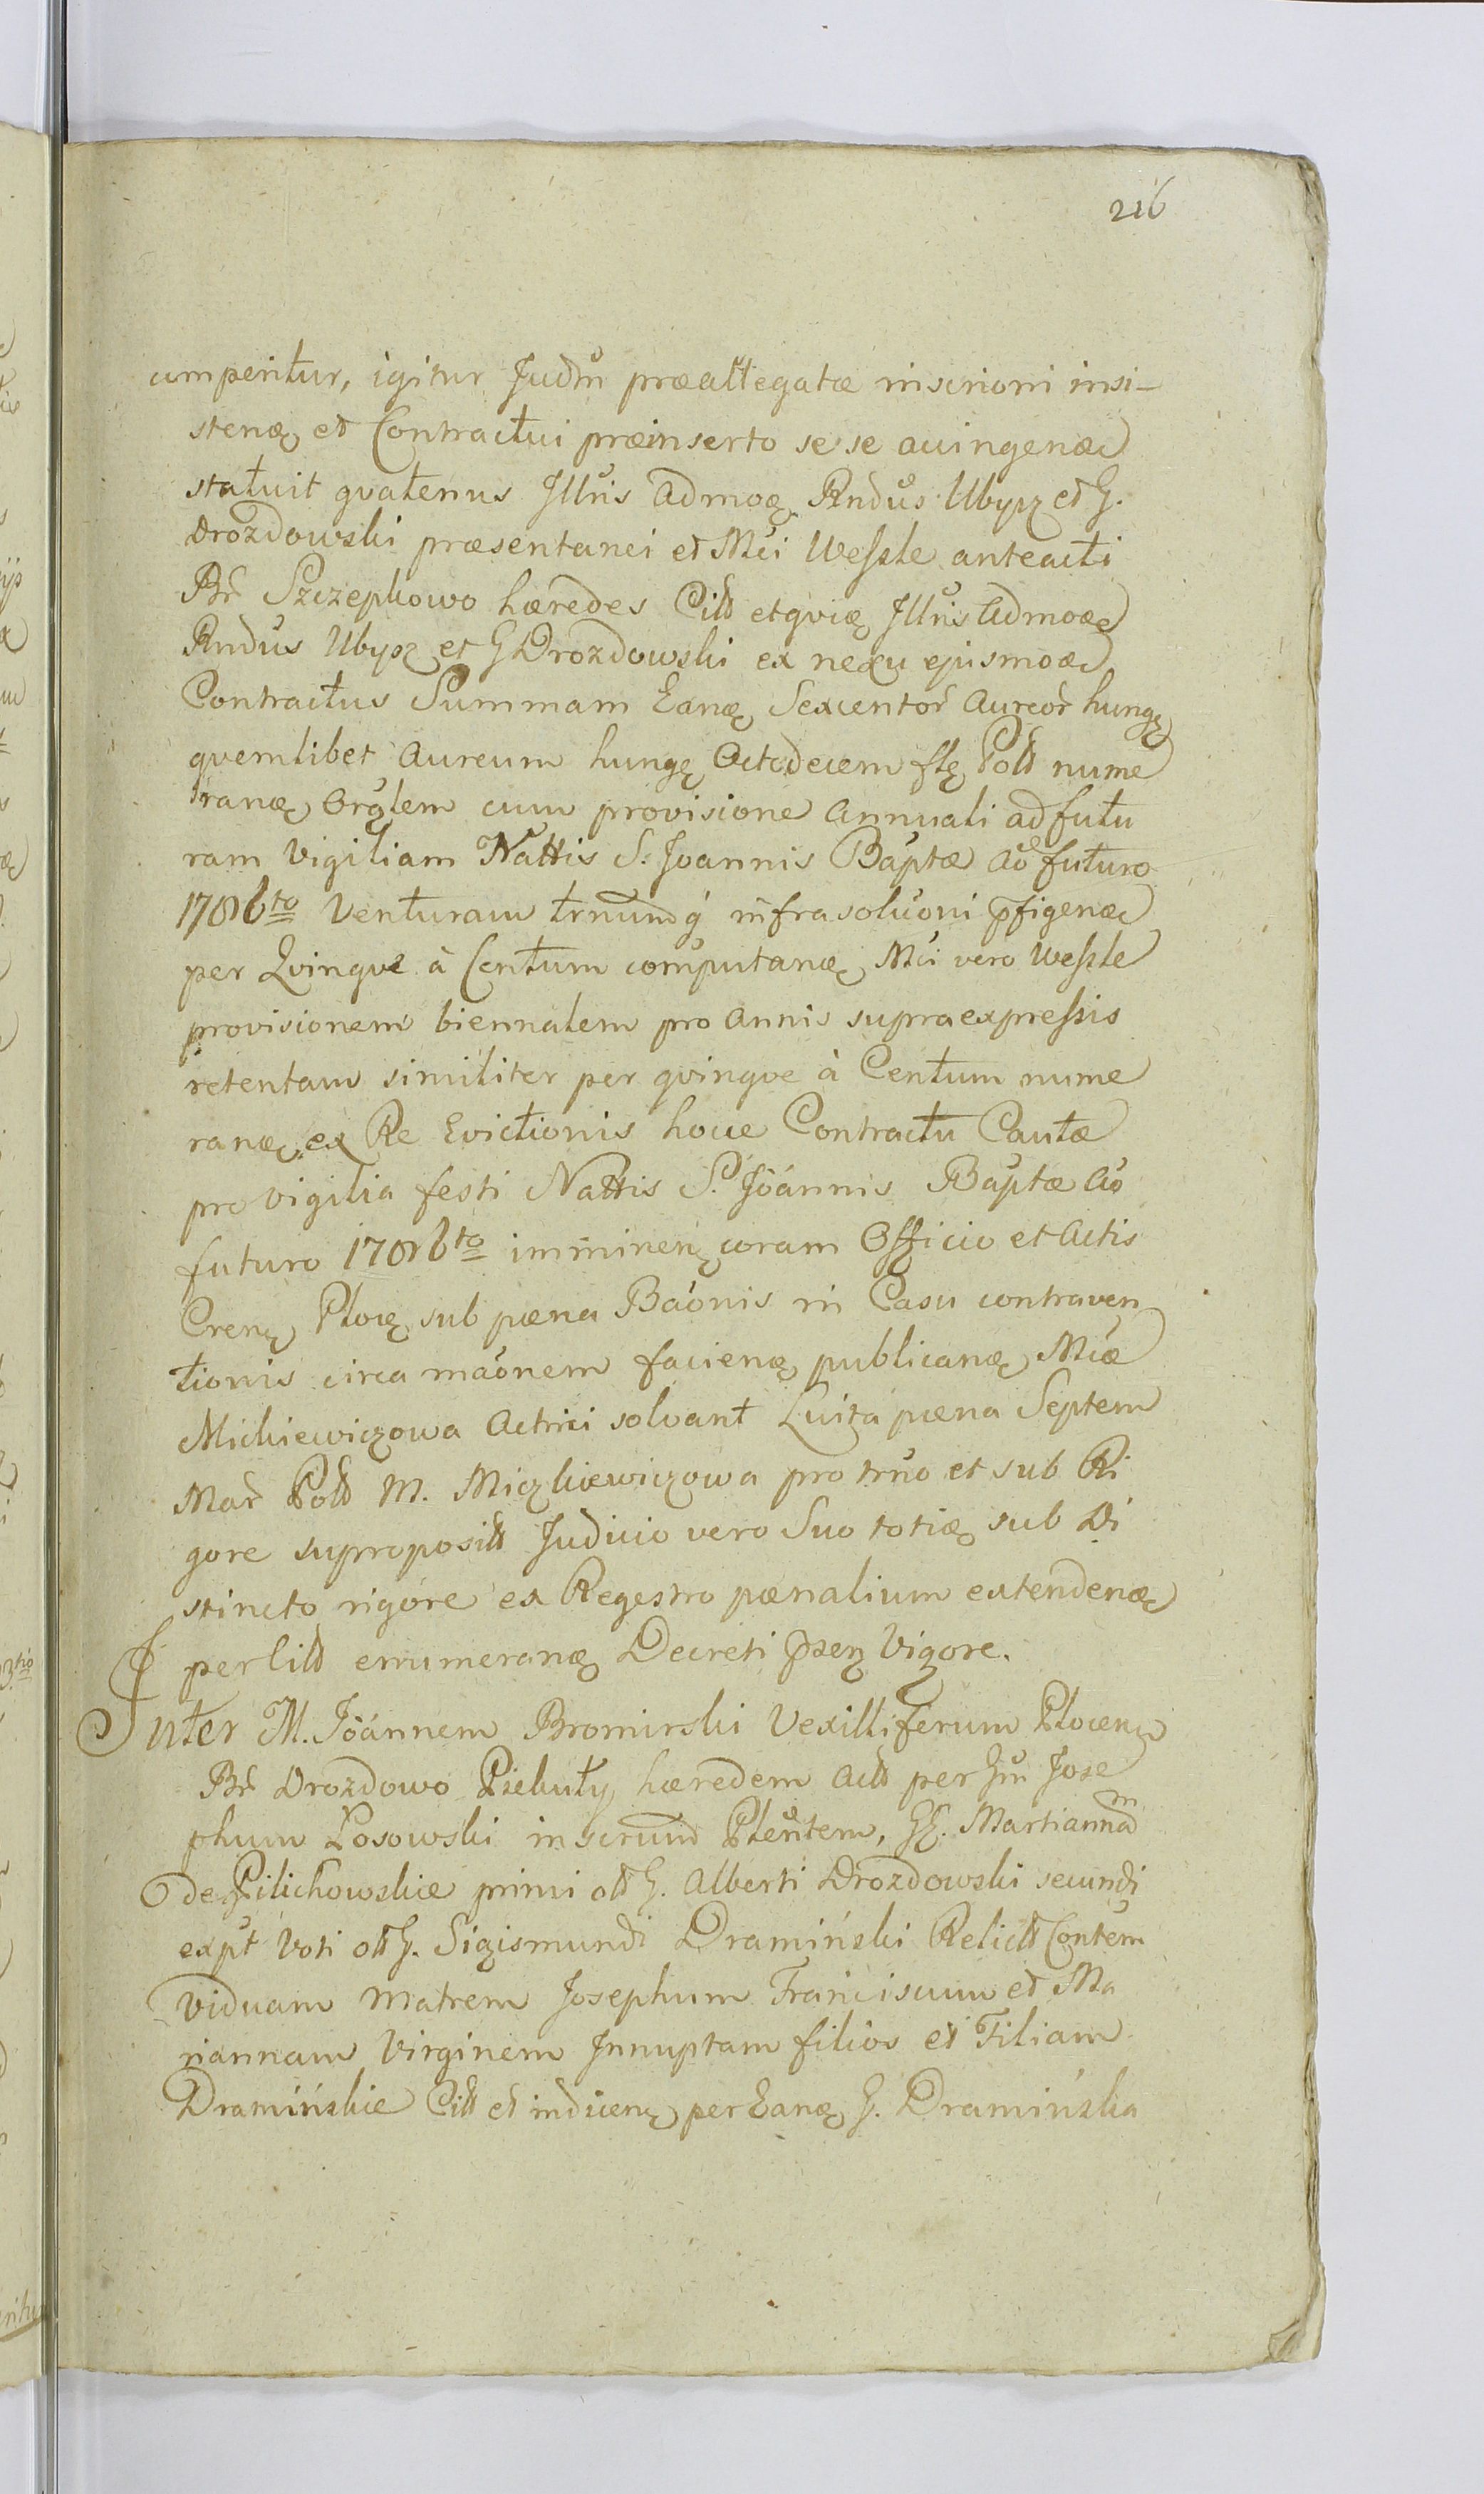 216
cumpentur, igitur Judm præallegatæ inscrioni insi-
stenæ et Contractui præinserto se se accingenæ
statuit qvatenus Illris admoæ Rndus Ubysz et G.
Drozdowski præsentanei et Mci Wessle anteacti
Br Szczepkowo hæredes Citt etqviæ Illris admoæ
Rndus Ubysz et G Drozdowski ex nexu ejusmoæ
Contractus Summam Eanæ Sexcentor Aureor hungę
qvemlibet Aureum hungę Octodecem flę Poltt nume
ranæ Orglem cum provisione Annuali ad futu
ram Vigiliam Nattis S. Joannis Baptæ Ao futuro
1786to Venturam trnumq infrasolucioni pfigenæ
per Qvinqve à Centum computanæ Mci vero Wessle
provisionem biennalem pro Annis supraexpressis
retentam similiter per qvinqve à Centum nume
ranæ ex Re Evictionis hocce Contractu Cautæ
pro vigilia festi Nattis S. Joannis Baptæ Ao
futuro 1786to imminenę coram Officio et Actis
Crenę Plocę sub pæna Baonis in Casu contraven
tionis circa maonem facienæ publicanæ Mcæ
Mickiewiczowa Actrici solvant Luita pæna Septem
Mar Poltt M. Miczkiewiczowa pro trno et sub Ri
gore supropositt Judicio vero Suo totiæ sub Di
stincto rigore ex Regestro pænalium extendenæ
per litt enumeranæ Decreti psenę Vigore.
Inter M. Joannem Bromirski Vexilliferum Plocenę
Br Drozdowo Piekuty hæredem Actt per Gm Jose
phum Losowski inscrumd Plentem, GG. Martiannam
de Pilichowskie primi ott G. Alberti Drozdowski secundi
expt Voti ott G. Sigismundi Dramiński Relictt Contem
Viduam Matrem Josephum Franciscum et Ma
riannam Virginem Innuptam filios et Filiam
Dramińskie Citt et indicenę per Eanæ G. Dramińska